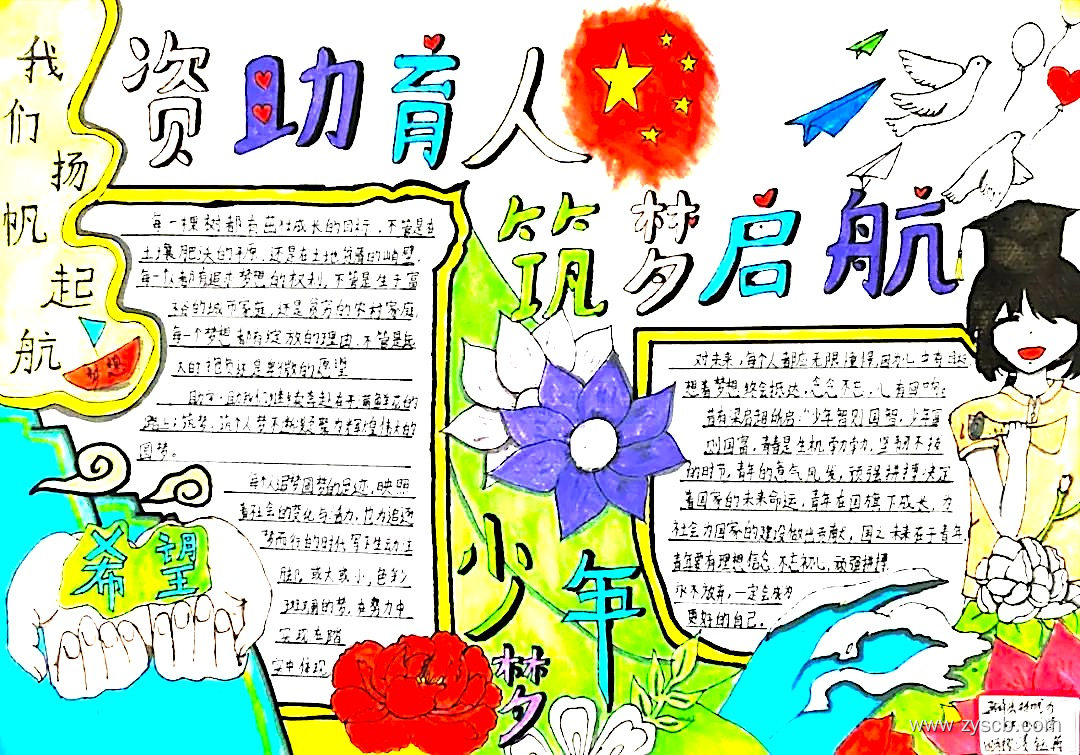 我们扬帆起航
资助育人
筑梦启航
梦想
每一棵树都有茁壮成长的目标,不管是在
土壤肥沃的平原,还是在土地贫瘠的峭壁
每一个人都有追求梦想的权利,不管是生于富
裕的城市家庭,还是贫穷的农村家庭
每一个梦想都有绽放的理由,不管是远
大的抱负还是卑微的愿望
路上筑梦,
圆梦。
每个人追梦圆梦的足迹,映照
着社会的变化与活力,也为追逐
梦而行的时代写下生动注
脚,或大或小,色彩
斑斓的梦,在努力中
实现在踏
实中体现
对未来,每个人都应无限憧憬,因为心中有
想着梦想终会抵达,念念不忘,心有回响
若有梁启超所启:“少年智则国智,少年富
则国富,青春是生机勃勃,坚韧不拔
的时节,青年的意气风发,顽强拼搏决定
着国家的未来命运,青年在国旗下成长,为
社会为国家的建设做出贡献,国之未来在于青年
青年要有理想信念,不忘初心,顽强拼搏
永不放弃,一定会成为
更好的自己。
希望
少年梦
www.zyscb.com